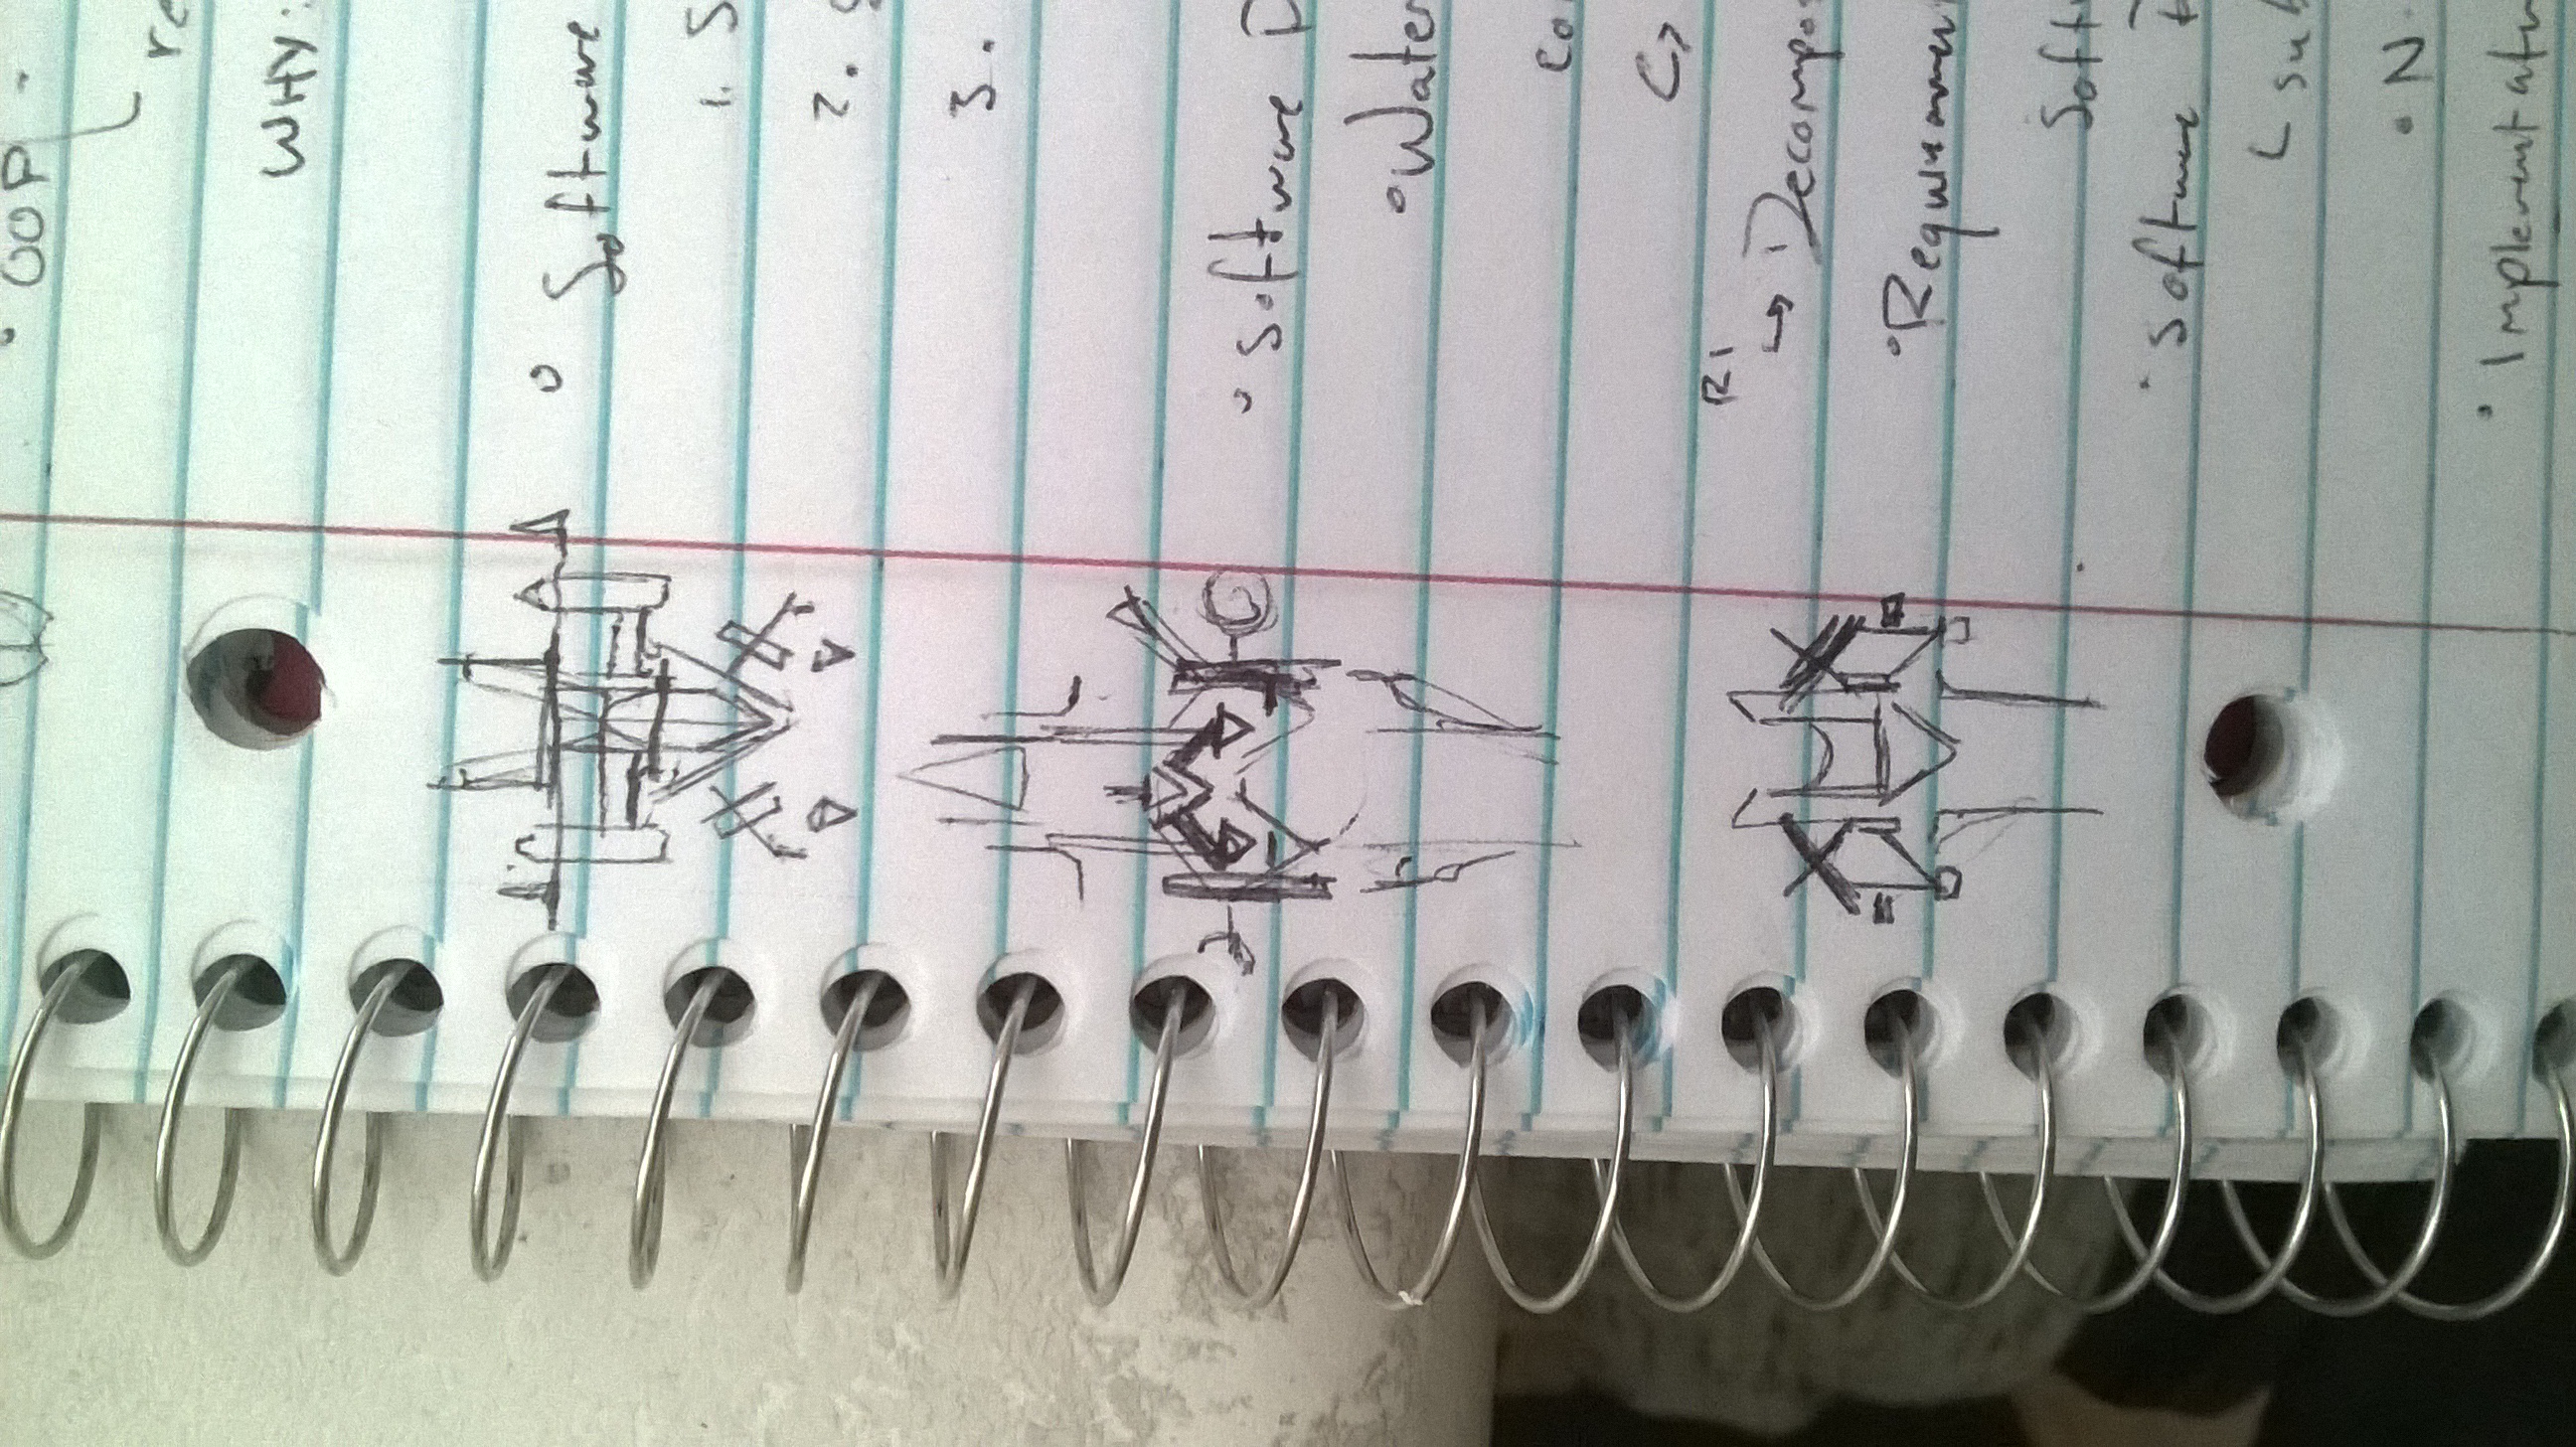 • OOP -
re
WHY:
Software
1. S
2.
3.
• Software D
• Water
co
R1
→ Decompo
• Requiremen
Softw
• Software
L sub
• N
• Implementatio